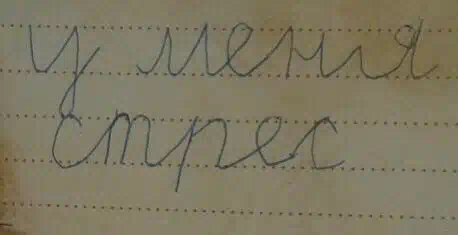 у меня
стрес